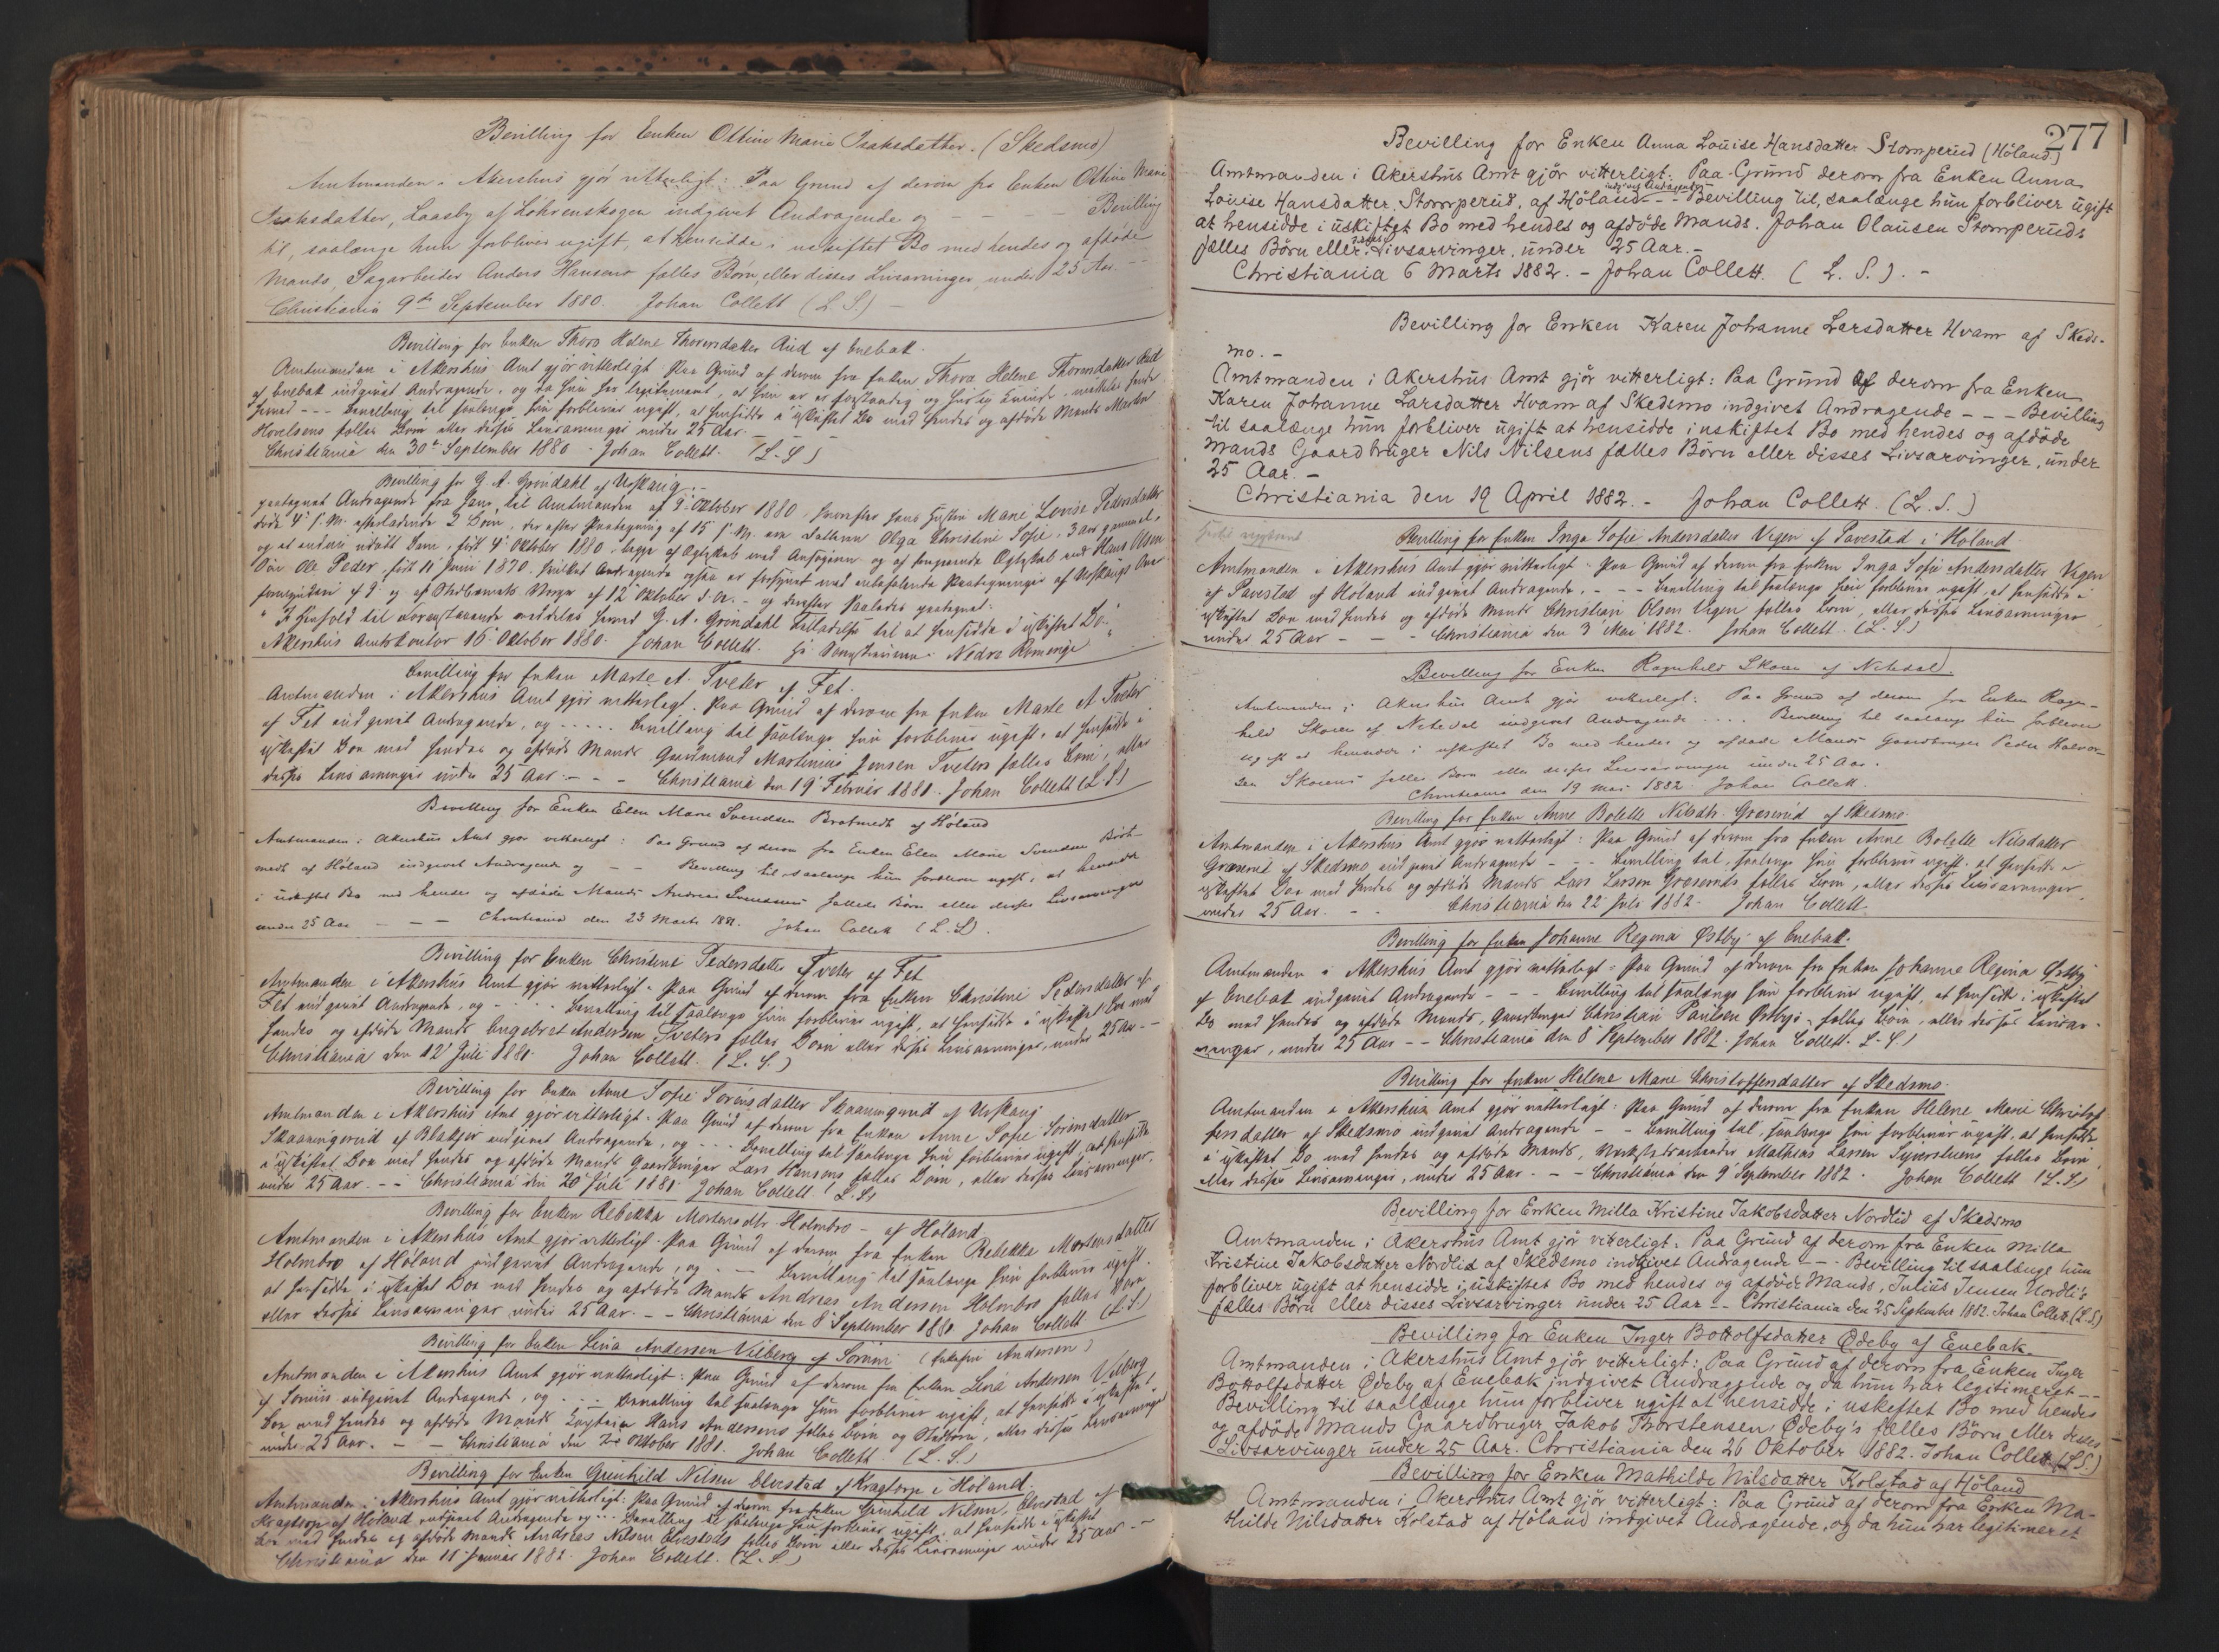 Bevilling for Enken Ottine Marie Isaksdatter. (Skedsmo)
Amtmanden i Akershus gjör vitterligt: Paa Grund af derom fra Enken Ottine Marie
Isaksdatter, Laasby af Lohrenskogen indgivet Andragende og - - - Bevilling
til, saalænge hun forbliver ugift, at hensidde i uskiftet Bo med hendes og afdöde
Mands, Sagarbeider Anders Hansens fælles Børn, eller disses Livsarvinger, under 25 Aar. - -
Christiania 9de September 1880. Johan Collett (L. S.)
Bevilling for Enken Thora Helene Thorensdatter Rud af Enebak.
Amtmanden i Akershus Amt gjör vitterligt: Paa Grund af derom fra Enken Thora Helene Thorensdatter Rud
af Enebak indgivet Andragende, og da hun har legitimeret, at hun er en forstandig og huslig Kvinde, meddeles hende
herved - - - Bevilling til saalænge hun forbliver ugift, at hensidde i uskiftet Bo med hendes og afdöde Mands Martin
Hovelsens fælles Börn eller disses Livsarvinger under 25 Aar. -
Christiania den 30te September 1880. Johan Collett. (L. S)
Bevilling for G. A. Gröndahl af Urskoug. -
paategnet Andragende fra ham, til Amtmanden af 8' Oktober 1880, hvorefter hans Hustru Marie Lovise Pedersdatter
döde 4' s. M. efterladende 2 Börn, der efter Paategning af 15 s. M. ere Datteren Olga Christine Sofie, 3 Aar gammel,
og et endnu udöbt Barn, födt 4' Oktober 1880, begge af Ægteskab med Ansögeren og af
Sön Ole Peder, födt 11 Juni 1870. hvilket Andragende ogsaa er forsynet med anbefalende Paategninger af Urskougs Over-
formynderi af og af Værge af 12 Oktober d. A. - og derefter saaledes paategnet:
"I Henhold til Foranstaaende meddeles herved G. A. Gröndahl Tilladelse til at hensidde i uskiftet Bo."
Akershus Amtskontor 16' Oktober 1880. Johan Collett. Nedre Romerige
Bevilling for Enken Marte A. Tveter af Fet.
Amtmanden i Akershus Amt gjör vitterligt: Paa Grund af derom fra Enken Marte A. Tveter
af Fet indgivet Andragende, og - - - - Bevilling til saalænge hun forbliver ugift, at hensidde i
uskiftet Bo med hendes og afdöde Mands Gaardmand Martinius Jensen Tveters fælles Börn, eller
disses Livsarvinger under 25 Aar. - - - Christiania den 19' Februar 1881. Johan Collett (L. S)
Bevilling for Enken Elen Marie Svendsen Bratmedt af Höland
Amtmanden i Akershus Amt gjör vitterligt: Paa Grund af derom fra Enken Elen Marie Svendsen Brat-
medt af Höland indgivet Andragende og - - Bevilling til, saalænge hun forbliver ugift, at hensidde
i uskiftet Bo med hendes og afdöde Mands Andreas Svendsens fælleds Börn eller disses Livsarvinger
under 25 Aar - - - Christiania den 23 Marts 1881. Johan Collett (L. S).
Bevilling for Enken Christine Pedersdatter Tveter af Fet
Amtmanden i Akershus Amt gjör vitterligt: Paa Grund af derom fra Enken Christine Pedersdatter af
Fet indgivet Andragende, og - - - Bevilling til saalænge hun forbliver ugift, at hensidde i uskiftet Bo med
hendes og afdöde Mands Engebret Andersen Tveters fælles Börn eller disses Livsarvinger, under 25 Aar. - -
Christiania den 12' Juli 1881. Johan Collett. (L. S.)
Bevilling for Enken Anne Sofie Sörensdatter Skaaningrud af Urskoug
Amtmanden i Akershus Amt gjör vitterligt: Paa Grund af derom fra Enken Anne Sofie Sörensdatter
Skaaningrud af Blakjer indgivet Andragende, og - - - Bevilling til saalænge hun forbliver ugift, at hensidde
i uskiftet Bo med hendes og afdöde Mands Gaardbruger Lars Hansens fælles Börn, eller disses Livsarvinger,
under 25 Aar. - - Christiania den 20 Juli 1881 Johan Collett (L. S)
Bevilling for Enken Rebekka Mortensdtr Holmbro - af Höland
Amtmanden i Akershus Amt gjör vitterligt: Paa Grund af derom fra Enken Rebekka Mortensdatter
Holmbro af Höland indgivet Andragende, og - - - Bevilling til saalænge hun forbliver ugift
at hensidde i uskiftet Bo med hendes og afdöde Mands Andreas Andersen Holmbro fælles Börn
eller disses Livsarvinger under 25 Aar. - - Christiania den 8' September 1881 Johan Collett (L. S.)
Bevilling for Enken Lina Andersen Vilberg af Sörum (Enkefru Andersen)
Amtmanden i Akershus Amt gjör vitterligt: Paa Grund af derom fra Enken Lina Andersen Vilberg
af Sörum indgivet Andragende, og - - - Bevilling til saalænge hun forbliver ugift, at hensidde i uskiftet
Bo med hendes og afdöde Mands Hans Andersens fælles Börn og Stedbörn, eller disses Livsarvinger
under 25 Aar. - - Christiania den Oktober 1881. Johan Collett. (L. S.)
Bevilling for Enken Gunhild Nilsen Elvestad af Kragtorp i Höland.
Amtmanden i Akershus Amt gjör vitterligt: Paa Grund af derom fra Enken Gunhild Nilsen, Elvestad af
Kragtorp af Höland indgivet Andragende og - - - Bevilling til saalænge hun forbliver ugift, at hensidde i uskiftet
Bo med hendes og afdöde Mands Andreas Nilsen Elvestads fælles Börn eller disses Livsarvinger under 25 Aar - -
Christiania den 11 Januar 1882. Johan Collett. (L. S.)
277
Bevilling for Enken Anna Louise Hansdatter Stomperud (Höland)
Amtmanden i Akershus Amt gjör vitterligt: Paa Grund derom fra Enken Anna
Louise Hansdatter, Stomperud, af Höland indgivet Andragende - - Bevilling til, saalænge hun forbliver ugift
at hensidde i uskiftet Bo med hendes og afdöde Mands. Johan Olausen Stomperuds
fælles Börn eller disses Livsarvinger, under 25 Aar. -
Christiania 6 Marts 1882. - Johan Collett. (L. S.). -
Bevilling for Enken Karen Johanne Larsdatter Hvam af Skeds-
mo. -
Amtmanden i Akershus Amt gjör vitterligt: Paa Grund af derom fra Enken
Karen Johanne Larsdatter Hvam af Skedsmo indgivet Andragende - - - Bevilling
til saalænge hun forbliver ugift at hensidde i uskiftet Bo med hendes og afdöde
Mands Gaardbruger Nils Nilsens fælles Börn eller disses Livsarvinger, under
25 Aar. -
Christiania den 19 April 1882. - Johan Collett. (L. S.)
Bevilling for Enken Inga Sofie Andersdatter Vegen af Tavestad i Höland
Amtmanden i Akershus Amt gjör vitterligt: Paa Grund af derom fra Enken Inga Sofie Andersdatter Vegen
af Tavestad af Höland indgivet Andragende, - - - Bevilling til saalænge hun forbliver ugift, at hensidde i
uskiftet Bo med hendes og afdöde Mands Christian Olsen Vegen fælles Börn, eller disses Livsarvinger
under 25 Aar - - - Christiania den 3' Mai 1882. Johan Collett. (L. S.)
Bevilling for Enken Ragnhild Skoien af Nitedal.
Amtmanden i Akershus Amt gjör vitterligt: Paa Grund af derom fra Enken Ragn-
hild Skoien af Nitedal indgivet Andragende . . . . Bevilling til saalænge hun forbliver
ugift at hensidde i uskiftet Bo med hendes og afdøde Mands Gaardbruger Peder Halvor-
sen Skoiens fælles Børn eller disses Livsarvinger under 25 Aar.
Christiania den 19 Mai 1882. Johan Collett.
Bevilling for Enken Anne Bolette Nilsdtr. Græsrud af Skedsmo.
Amtmanden i Akershus Amt gjör vitterligt: Paa Grund af derom fra Enken Anne Bolette Nilsdatter
Græsrud af Skedsmo indgivet Andragende - - - Bevilling til, saalænge hun forbliver ugift, at hensidde i
uskiftet Bo med hendes og afdöde Mands Lars Larsen Græsruds fælles Börn, eller disses Livsarvinger,
under 25 Aar. - - Christiania den 22' Juli 1882. Johan Collett.
Bevilling for Enken Johanne Regina Østby af Enebak.
Amtmanden i Akershus Amt gjör vitterligt: Paa Grund af derom fra Enken Johanne Regina Østby
af Enebak indgivet Andragende - - - Bevilling til saalænge hun forbliver ugift, at hensidde i uskiftet
Bo med hendes og afdöde Mands, Gaardbruger Christian Paulsen Østbys, fælles Börn, eller disses Livsar-
vinger, under 25 Aar - - Christiania den 8' September 1882. Johan Collett. L. S.)
Bevilling for Enken Helene Marie Christoffersdatter af Skedsmo.
Amtmanden i Akershus Amt gjör vitterligt: Paa Grund af derom fra Enken Helene Marie Christof-
fersdatter af Skedsmo indgivet Andragende - - Bevilling til, saalænge hun forbliver ugift, at hensidde
i uskiftet Bo med hendes og afdöde Mands, Værkstedarbeider Mathias Larsen Syverstuens fælles Börn
eller disses Livsarvinger, under 25 Aar. - - Christiania den 9' September 1882. Johan Collett (L. S.)
Bevilling for Enken Milla Kristine Jakobsdatter Nordlid af Skedsmo
Amtmanden i Akershus Amt gjör vitterligt: Paa Grund af derom fra Enken Milla
Kristine Jakobsdatter Nordlid af Skedsmo indgivet Andragende - - - Bevilling til saalænge hun
forbliver ugift at hensidde i uskiftet Bo med hendes og afdöde Mands, Julius Jensen Nordli's
fælles Börn eller disses Livsarvinger under 25 Aar - - Christiania den 25 September 1882. Johan Collett. (L. S.)
Bevilling for Enken Inger Bottolfsdatter Ødeby af Enebak.
Amtmanden i Akershus Amt gjör vitterligt: Paa Grund af derom fra Enken Inger
Bottolfsdatter Ødeby af Enebak indgivet Andragende og da hun har legitimeret - -
Bevilling til saalænge hun forbliver ugift at hensidde i uskiftet Bo med hendes
og afdöde Mands Gaardbruger Jakob Thorstensen Ødeby's fælles Börn eller disses
Livsarvinger under 25 Aar. Christiania den 26 Oktober 1882. Johan Collett. (L. S.)
Bevilling for Enken Mathilde Nilsdatter Kolstad af Höland
Amtmanden i Akershus Amt gjör vitterligt: Paa Grund af derom fra Enken Ma-
thilde Nilsdatter Kolstad af Höland indgivet Andragende, og da hun har legitimeret